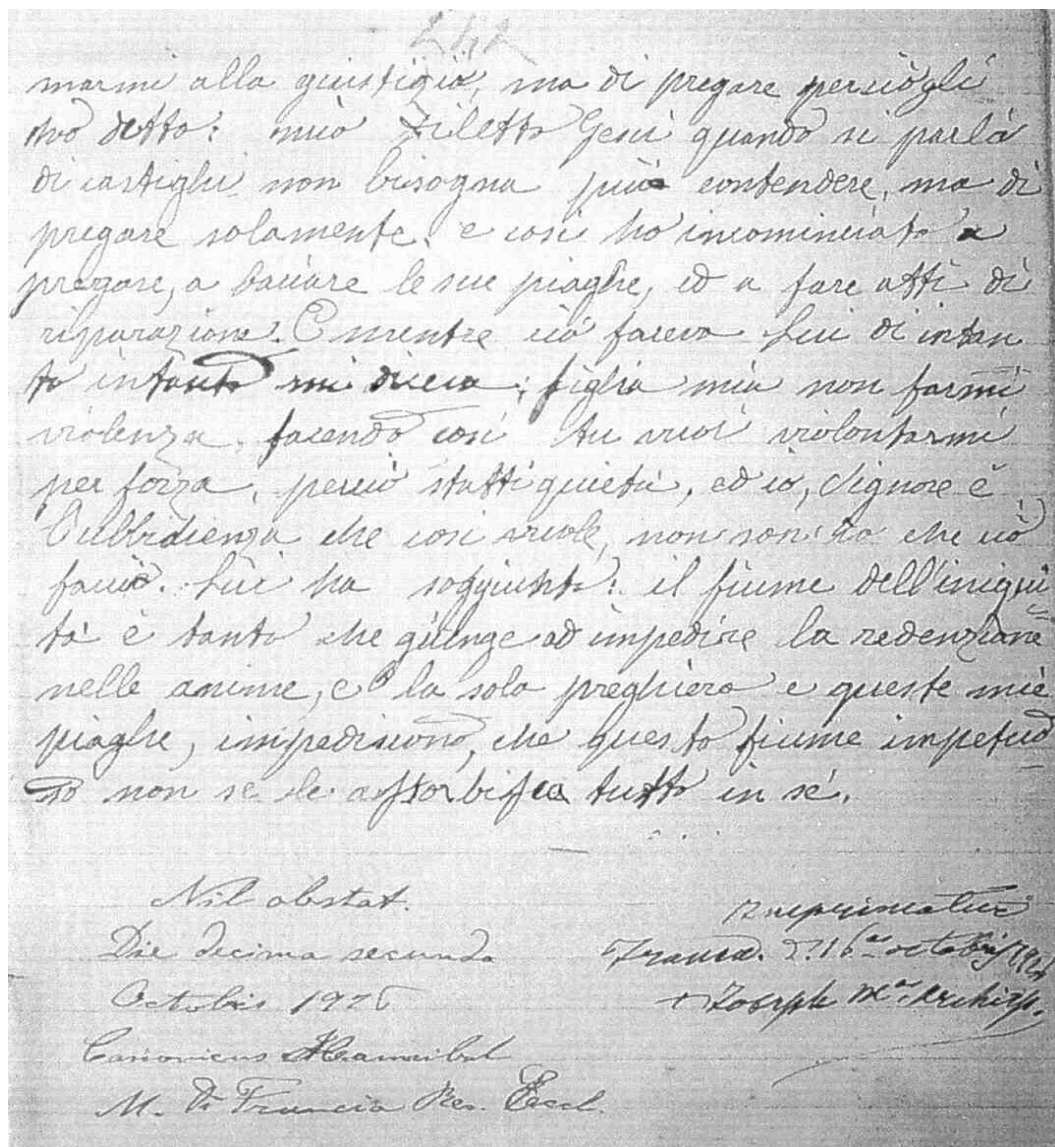 marmi alla giustizia, ma di pregare perciò gli
ho detto: mio Diletto Gesù quando si parla
di castighi non bisogna più contendere, ma di
pregare solamente. e così ho incominciato a
pregare, a baciare le sue piaghe, ed a fare atti di
riparazione. E mentre ciò faceva Lui di intan
to intanto mi diceva; figlia mia non farmi
violenza, facendo così tu vuoi violentarmi
per forza, perciò statti quieta, ed io, Signore è
l'ubbidienza che così vuole, non son io che ciò
facio. Lui ha soggiunto: il fiume dell'iniqui
tà è tanto che giunge ad impedire la redenzione
nelle anime, e la sola preghiera e queste mie
piaghe, impediscono, che questo fiume impetuo
so non se le assorbisca tutto in sé.
Nil obstat.
Die decima secunda
Octobris 1926
Canonicus Hannibal
M. Di Francia Rev. Eccl.
Imprimatur
16 octobris
Joseph M. Archiep.